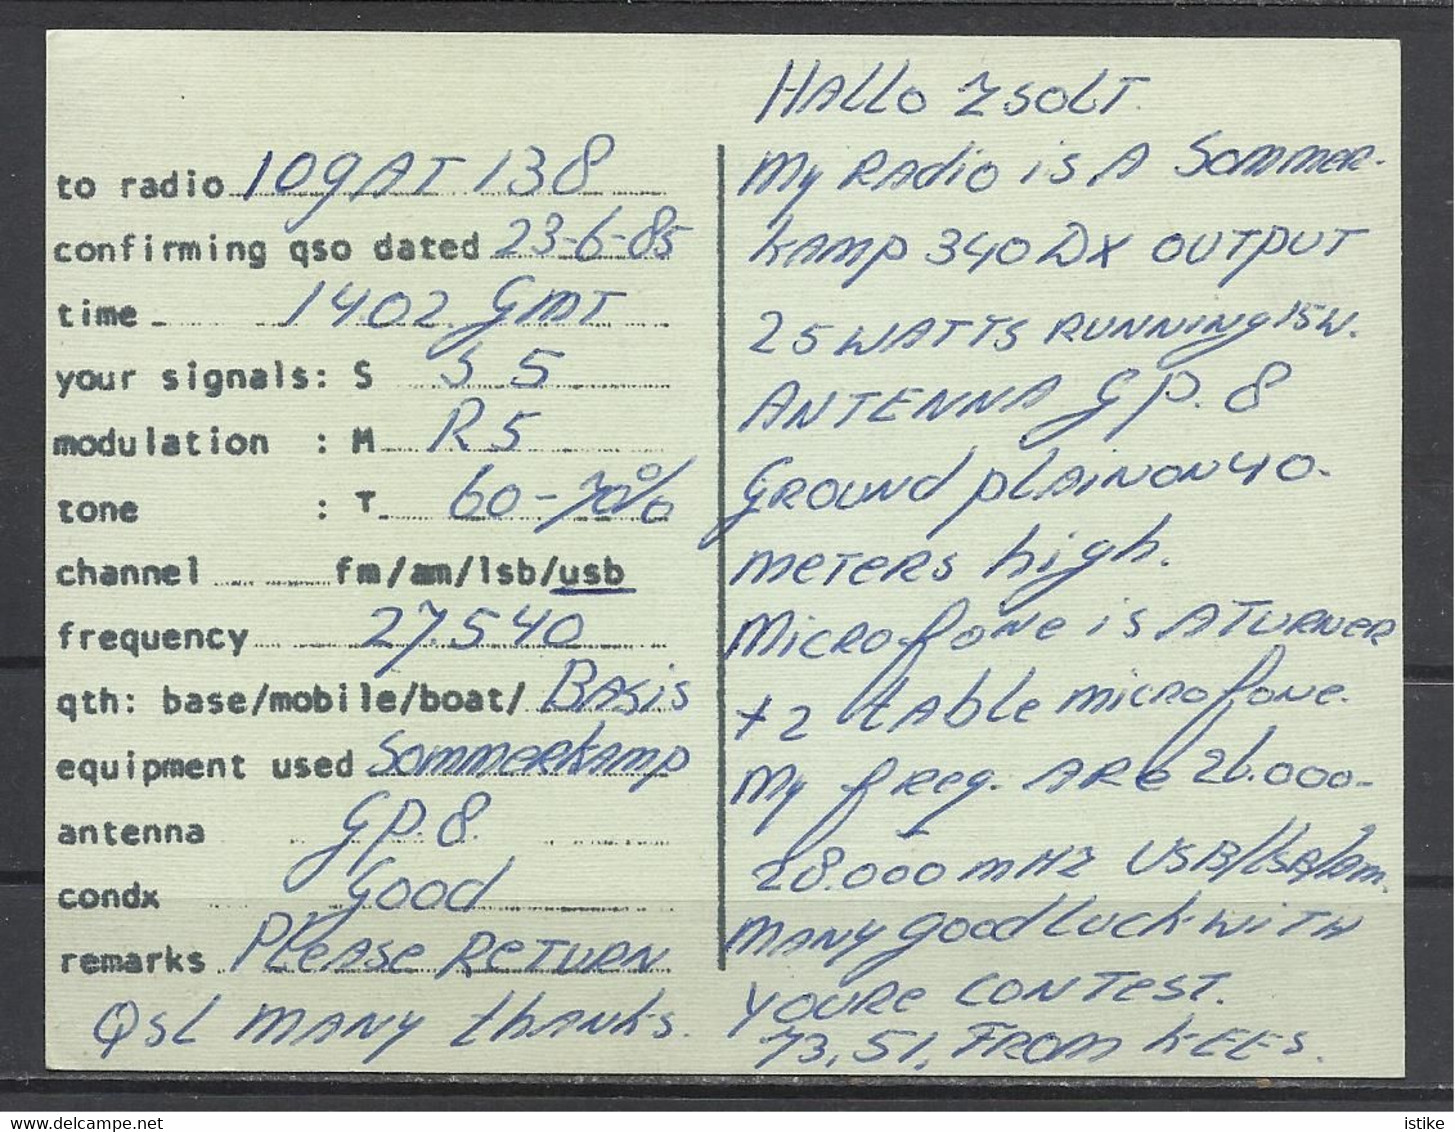 to radio 109AT138
confirming qso dated 23-6-85
time 1402 GMT
your signals: S S5
modulation : M R5
tone : T 60-70%
channel fm/am/lsb/usb
frequency 27.540
qth: base/mobile/boat/ BASIS
equipment used SOMMERKAMP
antenna GP.8.
condx Good
remarks PLEASE RETURN
QSL MANY thANKS.
HALLO ZSOLT.
My RADIO is A SOMMER-
KAMP 340 DX OUTPUT
25 WATTS RUNNING 15W.
ANTENNA GP. 8
GROUND PLAIN ON 40-
METERS high.
MICROFONE is A TURNER
+2 tABLE MICROFONE.
My freq. ARE 26.000-
28.000 MHZ USB/LSB/fm.
MANY GOOD LUCK WITH
YOURE CONTEST.
73, 51, FROM KEES.
Delcampe.net
istike